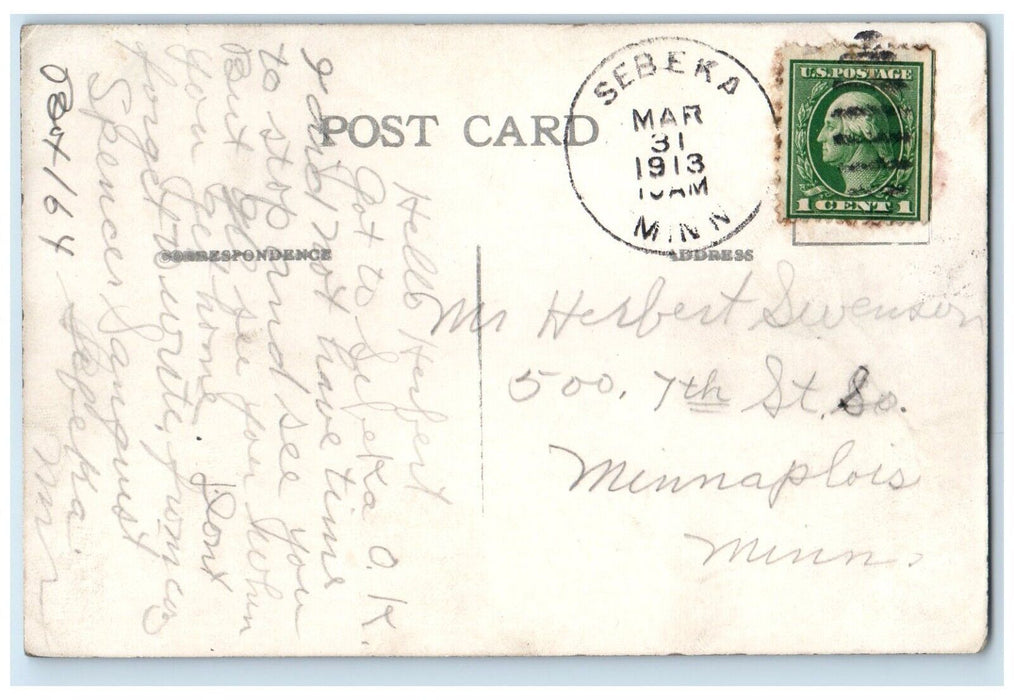 POST CARD
CORRESPONDENCE
ADDRESS
SEBEKA
MAR
31
1913
10AM
MINN
U.S. POSTAGE
1 CENT 1
Mr Herbert Swenson
500, 7th St, So.
Minnaplois
Minn.
Hello Herbert
Got to Sebeka O. K.
I did not have time
to stop and see you
But see you when
you get home. Dont
forget to write, from
Spencer
Box 164 Sebeka.
Minn